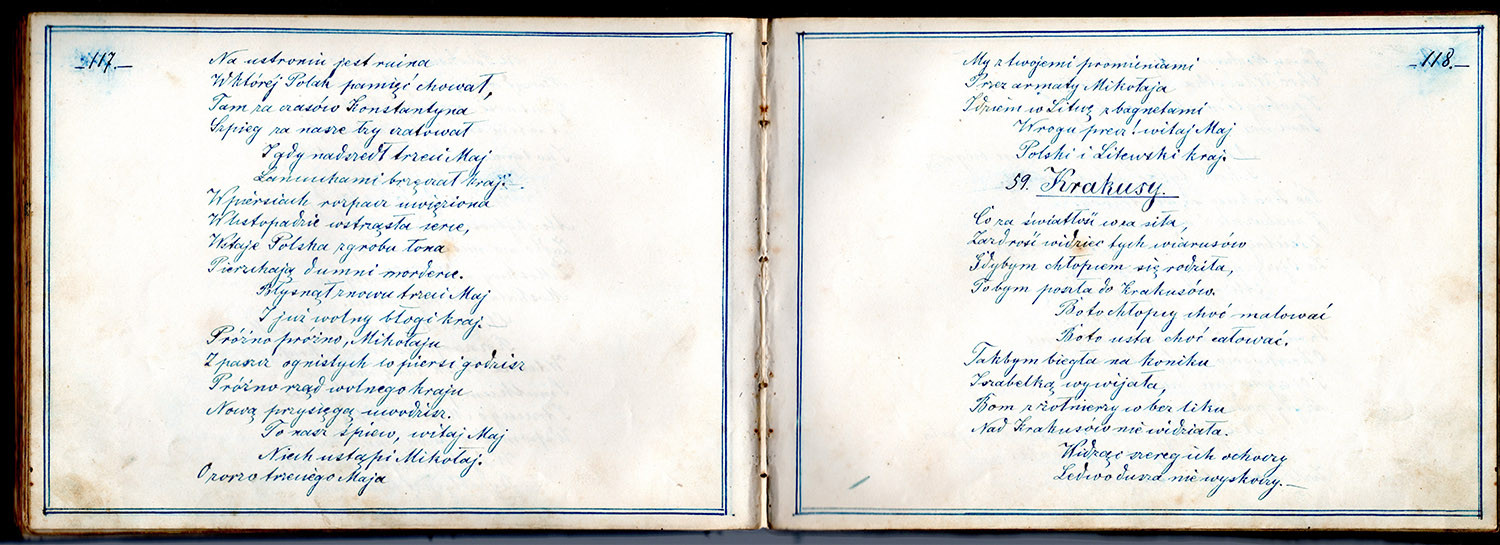 -117.-
Na ustroniu jest ruina
W któréj Polak pamięć chował,
Tam za czasów Konstantyna
Szpieg za nasze łzy czatował
I gdy nadszedł trzeci Maj
Łańcuchami brzęczał kraj.-
W piersiach rozpacz uwięziona
W listopadzie wstrząsła serce,
Wstaje Polska z grobu łona
Pierzchają dumni morderce.
Błysnął znowu trzeci Maj
I już wolny błogi kraj.
Próżno próżno, Mikołaju
Z paszcz ognistych w piersi godzisz
Próżno rząd wolnego kraju
Nową przysięgą uwodzisz.
To nasz śpiew, witaj Maj
Niech ustąpi Mikołaj.
O zorzo trzeciego Maja
-118.-
My z twojemi promieniami
Przez armaty Mikołaja
Idziem w Litwę z bagnetami
Wrogu precz! witaj Maj
Polski i Litewski kraj.-
59. Krakusy.
Co za światłość wsa siła,
Zazdrość widzieć tych wiarusów
Gdybym chłopcem się rodziła,
Tobym poszła do Krakusów.
Bo to chłopcy choć malować
Bo to usta choć całować.
Takbym biegła na koniku
I szabelką wywijała
Bom z żołnierzy w bez liku
Nad Krakusów nie widziała.
Widząc szereg ich ochoczy
Ledwo dusza nie wyskoczy.-